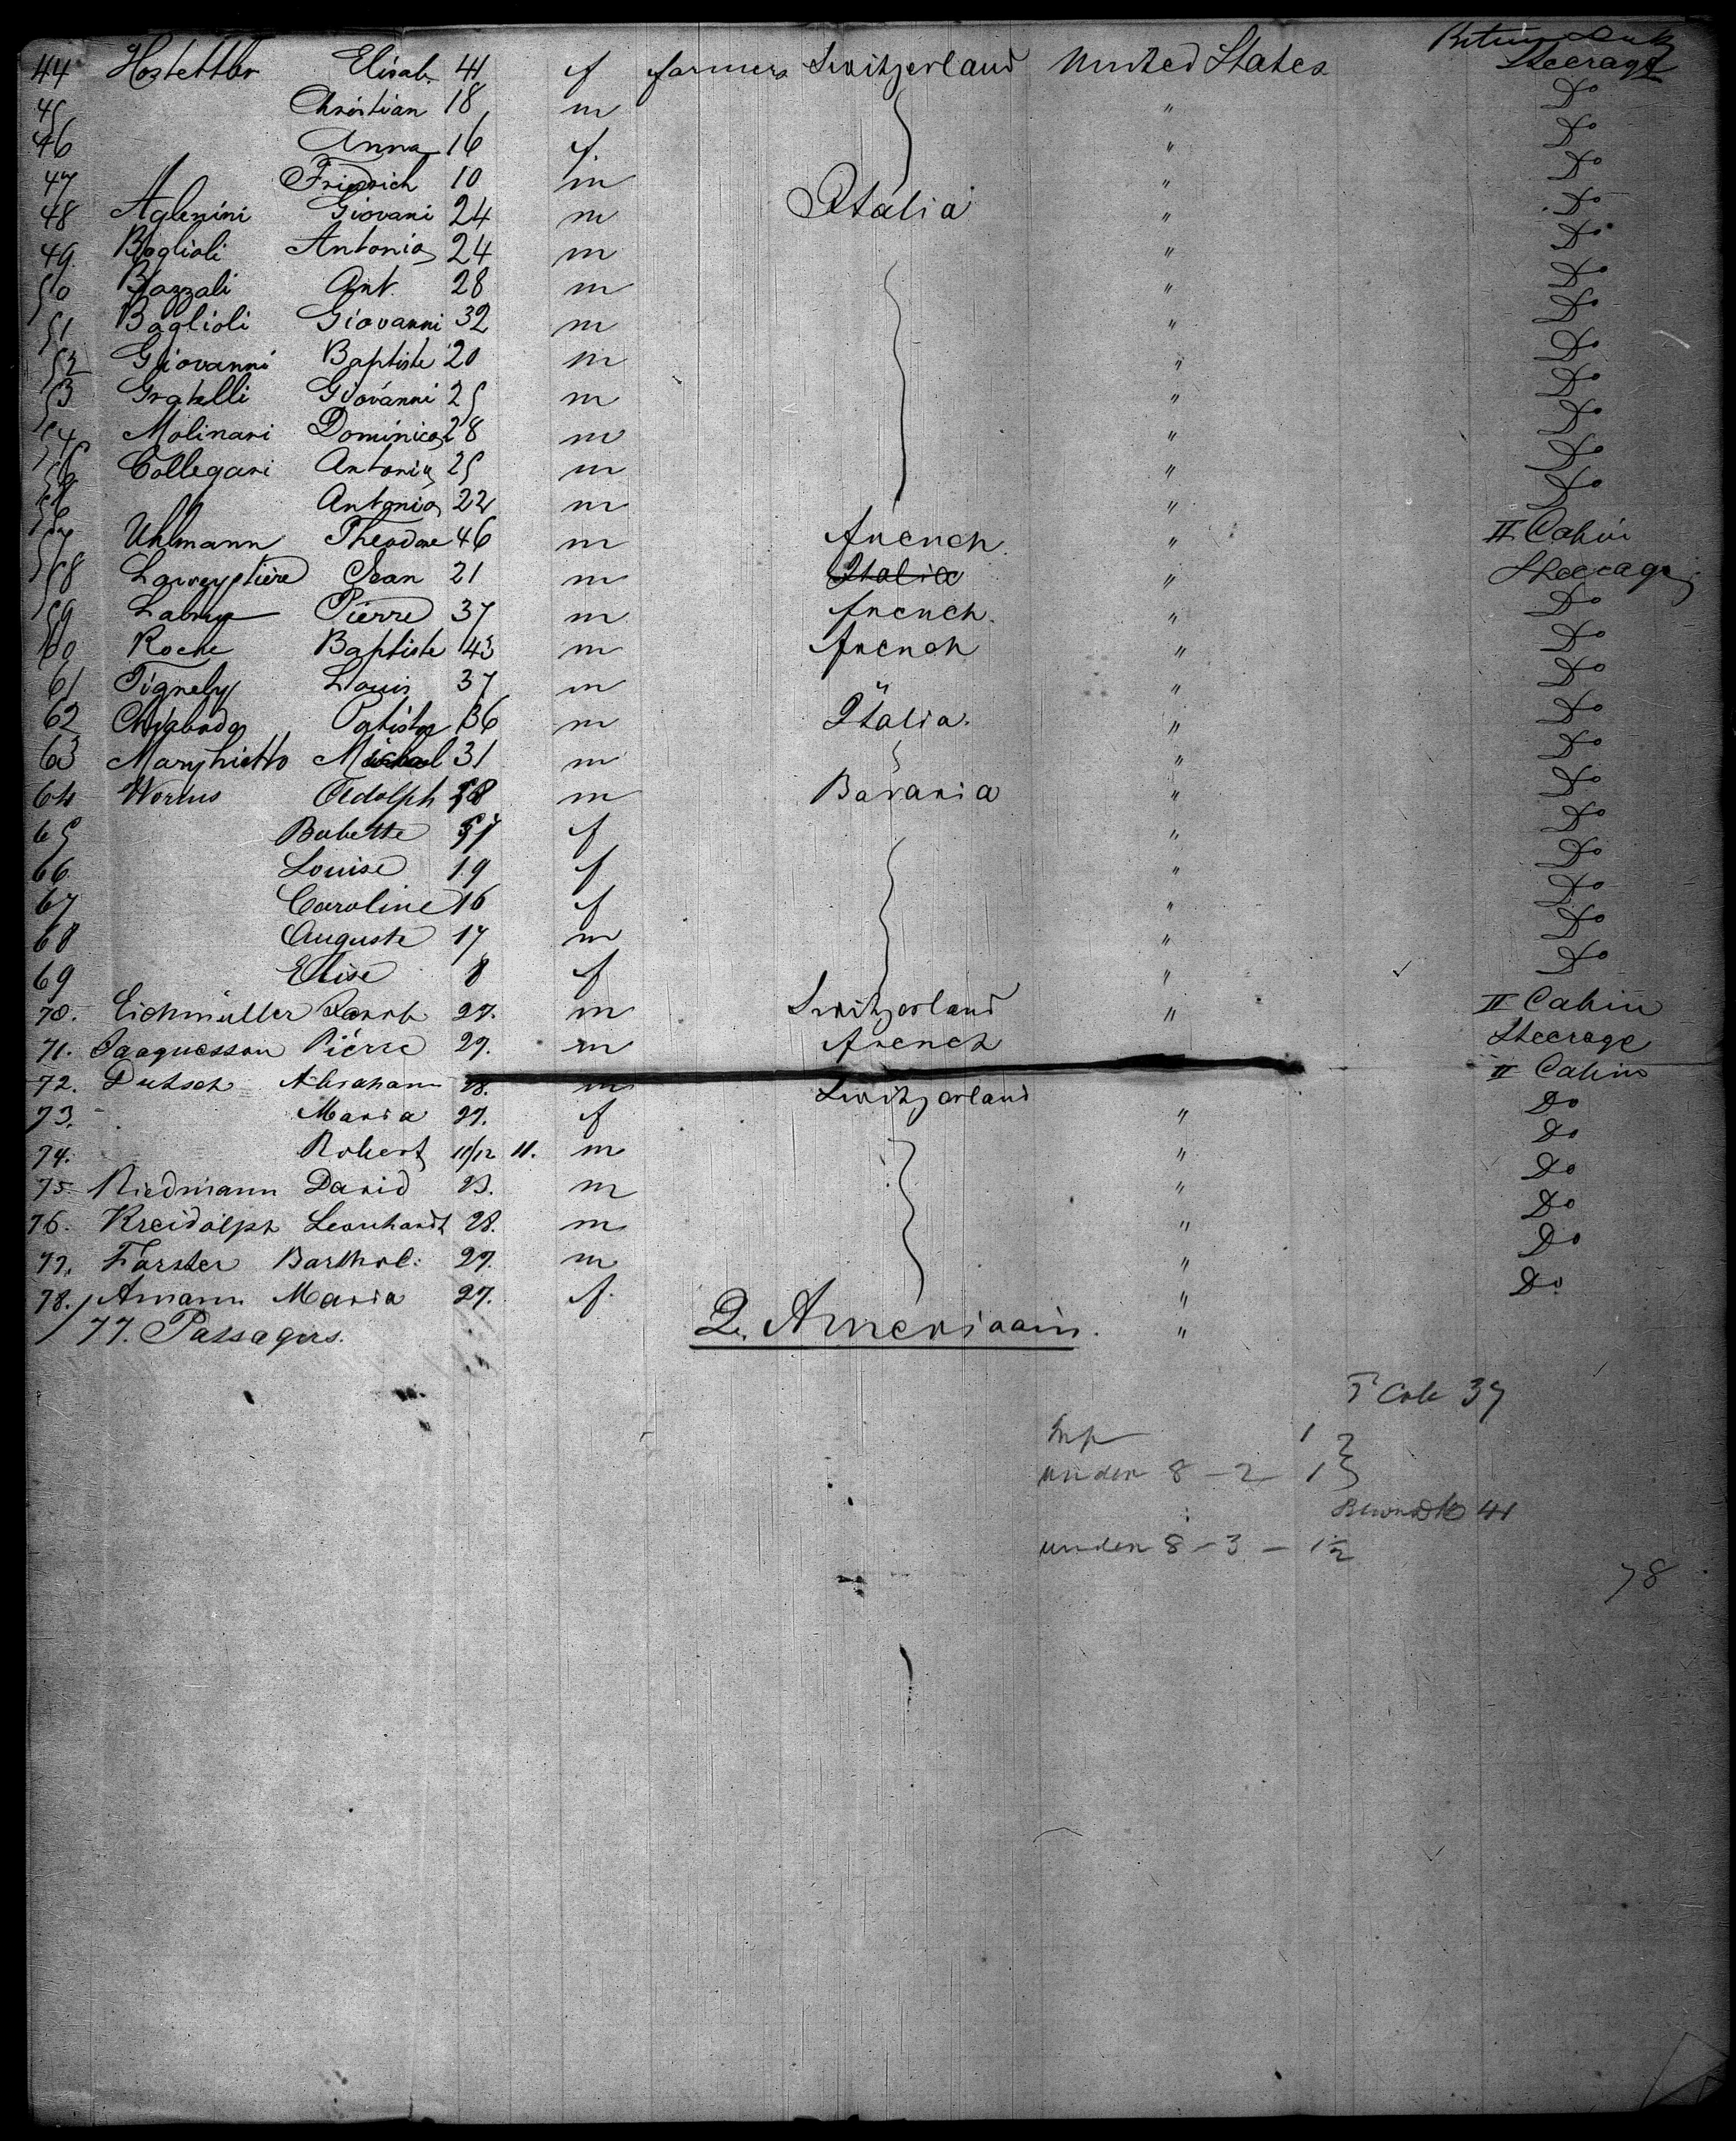 Between Decks
44 Hostettler Elisab. 41 f farmers Switzerland United States Steerage
45 Christian 18 m " Do
46 Anna 16 f. " Do
47 Friedrich 10 m " Do
48 Aglenini Giovani 24 m Italia " Do
49. Boglioli Antonio 24 m " Do
50 Bazzali Ant. 28 m " Do
51 Baglioli Giovanni 32 m " Do
52 Giovanni Baptiste 20 m " Do
53 Gratelli Giovanni 25 m " Do
54 Molinari Dominico 28 m " Do
Collegari Antonio 25 m " Do
56 Antonio 22 m " Do
57 Uhlmann Theodore 46 m french. " II Cabin
58 Jean 21 m Italia " Steerage
59 Pierre 37 m french. " Do
60 Roche Baptiste 43 m french " Do
61 Tignely Louis 37 m " " Do
62 36 m Italia. " Do
63 Maryhietto Michael 31 m " Do
64 Worms Adolph 58 m Bavaria " Do
65 Babette 57 f " Do
66. Louise 19 f " Do
67 Caroline 16 f " Do
68 Auguste 17 m " Do
69 Elise 8 f " Do
70. Eichmüller Jacob 27. m Switzerland " II Cabin
71. Jaaquesson Piérre 29. m french Steerage
72. Dutsch Abraham 28. m Switzerland II Cabin
73. Maria 27. f " Do
74. Robert 11/12 11. m " Do
75. Riedmann David 23. m " Do
76. Kreidolph Leonhardt 28. m " Do
77. Förster Barthol: 27. m " Do
78. Amann Maria 27. f. " Do.
77. Passagers. 2. Americain. "
Cab 37
1
under 8 - 2 1
41
under 8 - 3 - 1½
78